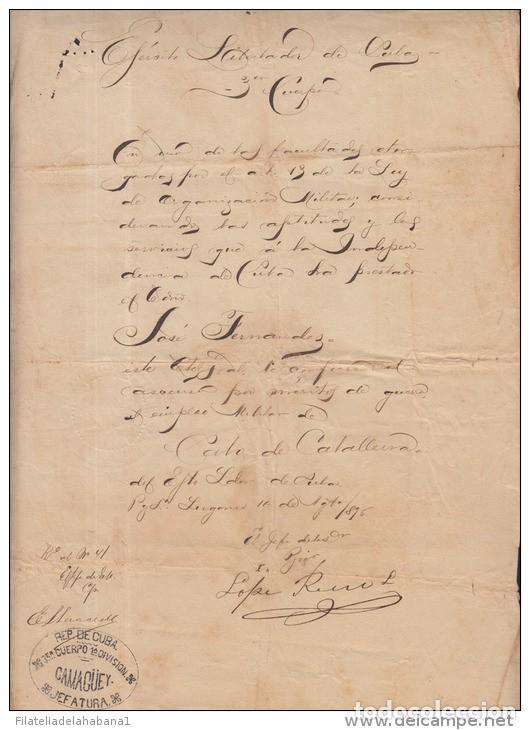 Ejército Libertador de Cuba
3er Cuerpo
En uso de las facultades otor-
gadas por el art. 19 de la Ley
de Organización Militar, consi-
derando las aptitudes y los
servicios que á la Indepen-
dencia de Cuba ha prestado
el Cdno
José Fernandez
este Ctel Gral, le confiere el
ascenso por méritos de guerra
al empleo Militar de
Cabo de Caballería
del Ejto Ldor de Cuba
de Agto/896
El Jefe
Lope Recio L
REP. DE CUBA
3er CUERPO 1a DIVISION
CAMAGÜEY
JEFATURA
© Filateliadelahabana1
todocoleccion
www.delcampe.net